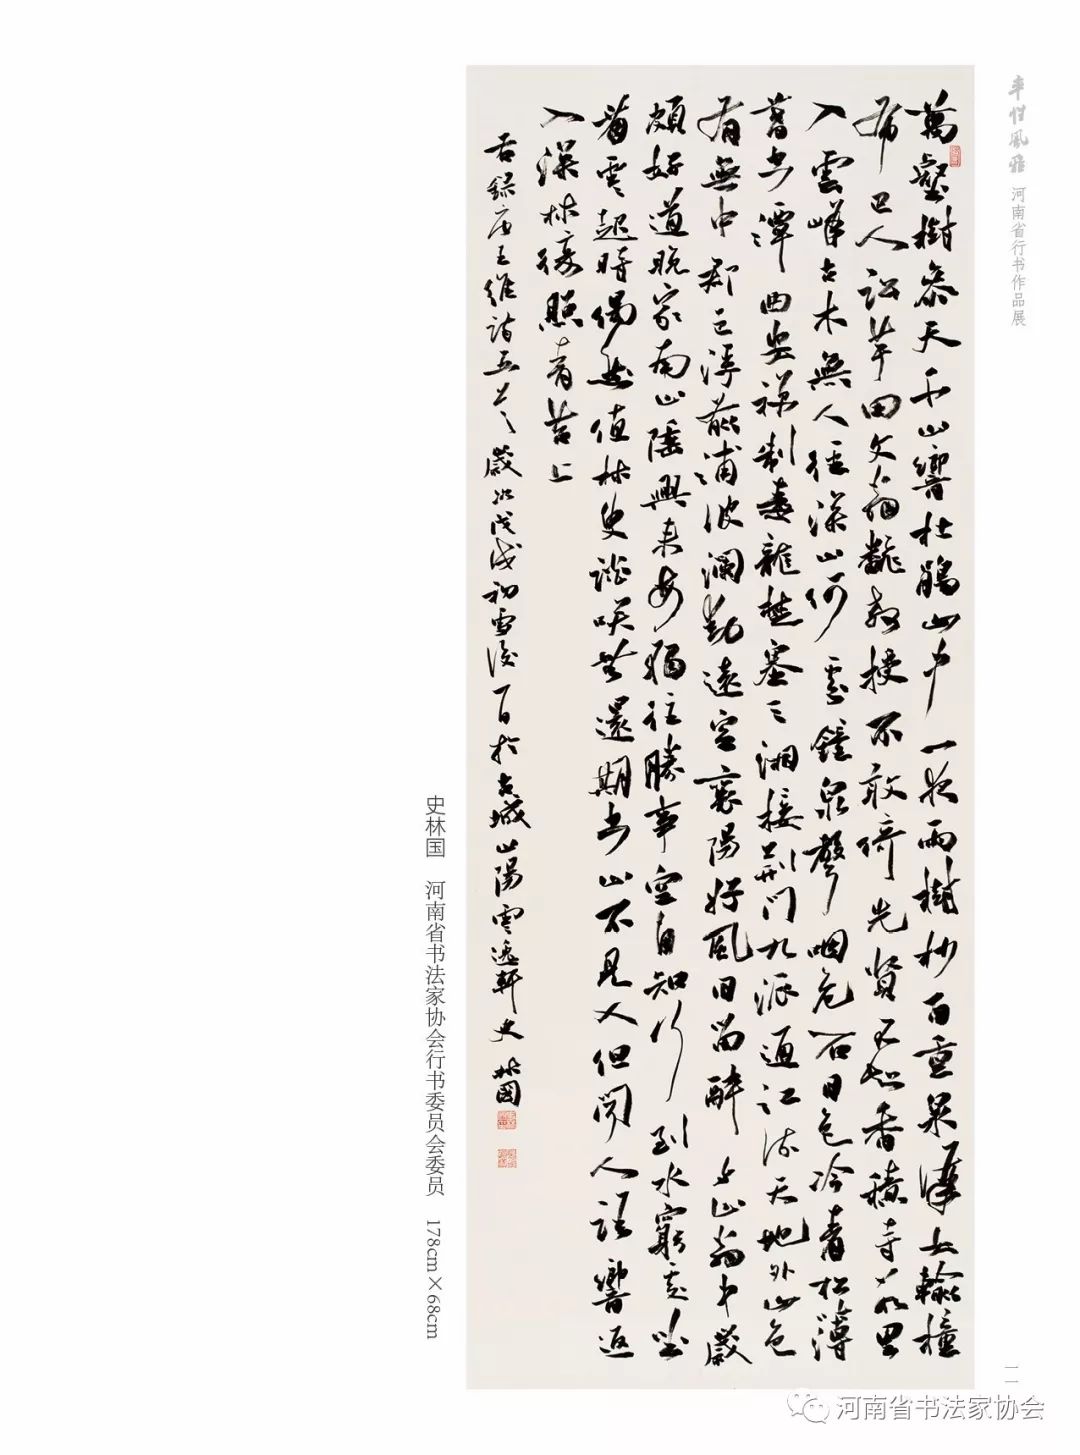 率性風雅 河南省行书作品展
萬壑樹參天千山響杜鵑山中一夜雨樹杪百重泉漢女輸橦
布巴人訟芋田文翁翻教授不敢倚先賢不知香積寺數里
入雲峰古木無人徑深山何處鐘泉聲咽危石日色冷青松薄
暮空潭曲安禪制毒龍楚塞三湘接荊門九派通江流天地外山色
有無中郡邑浮前浦波瀾動遠空襄陽好風日留醉與山翁中歲
頗好道晚家南山陲興來每獨往勝事空自知行到水窮處坐
看雲起時偶然值林叟談笑無還期空山不見人但聞人語響返
入深林復照青苔上
右錄唐王維詩五首 歲次戊戌初雪後一日於古城山陽雲逸軒史林國
史林国 河南省书法家协会行书委员会委员 178cm×68cm
一一
河南省书法家协会